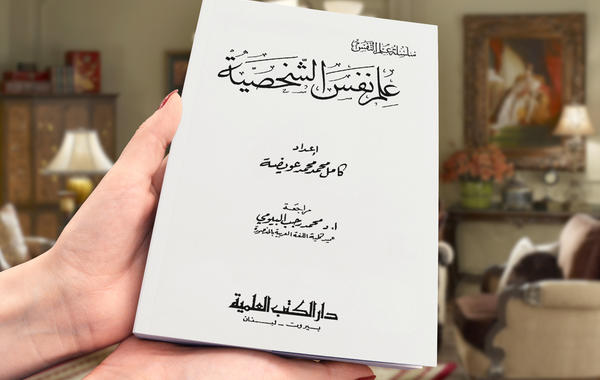 سلسلة علم النفس
علم نفس الشخصية
إعداد
كامل محمد محمد عويضة
مراجعة
أ. د محمد رجب البيومي
عميد كلية اللغة العربية بالمنصورة
دار الكتب العلمية
بيروت - لبنان